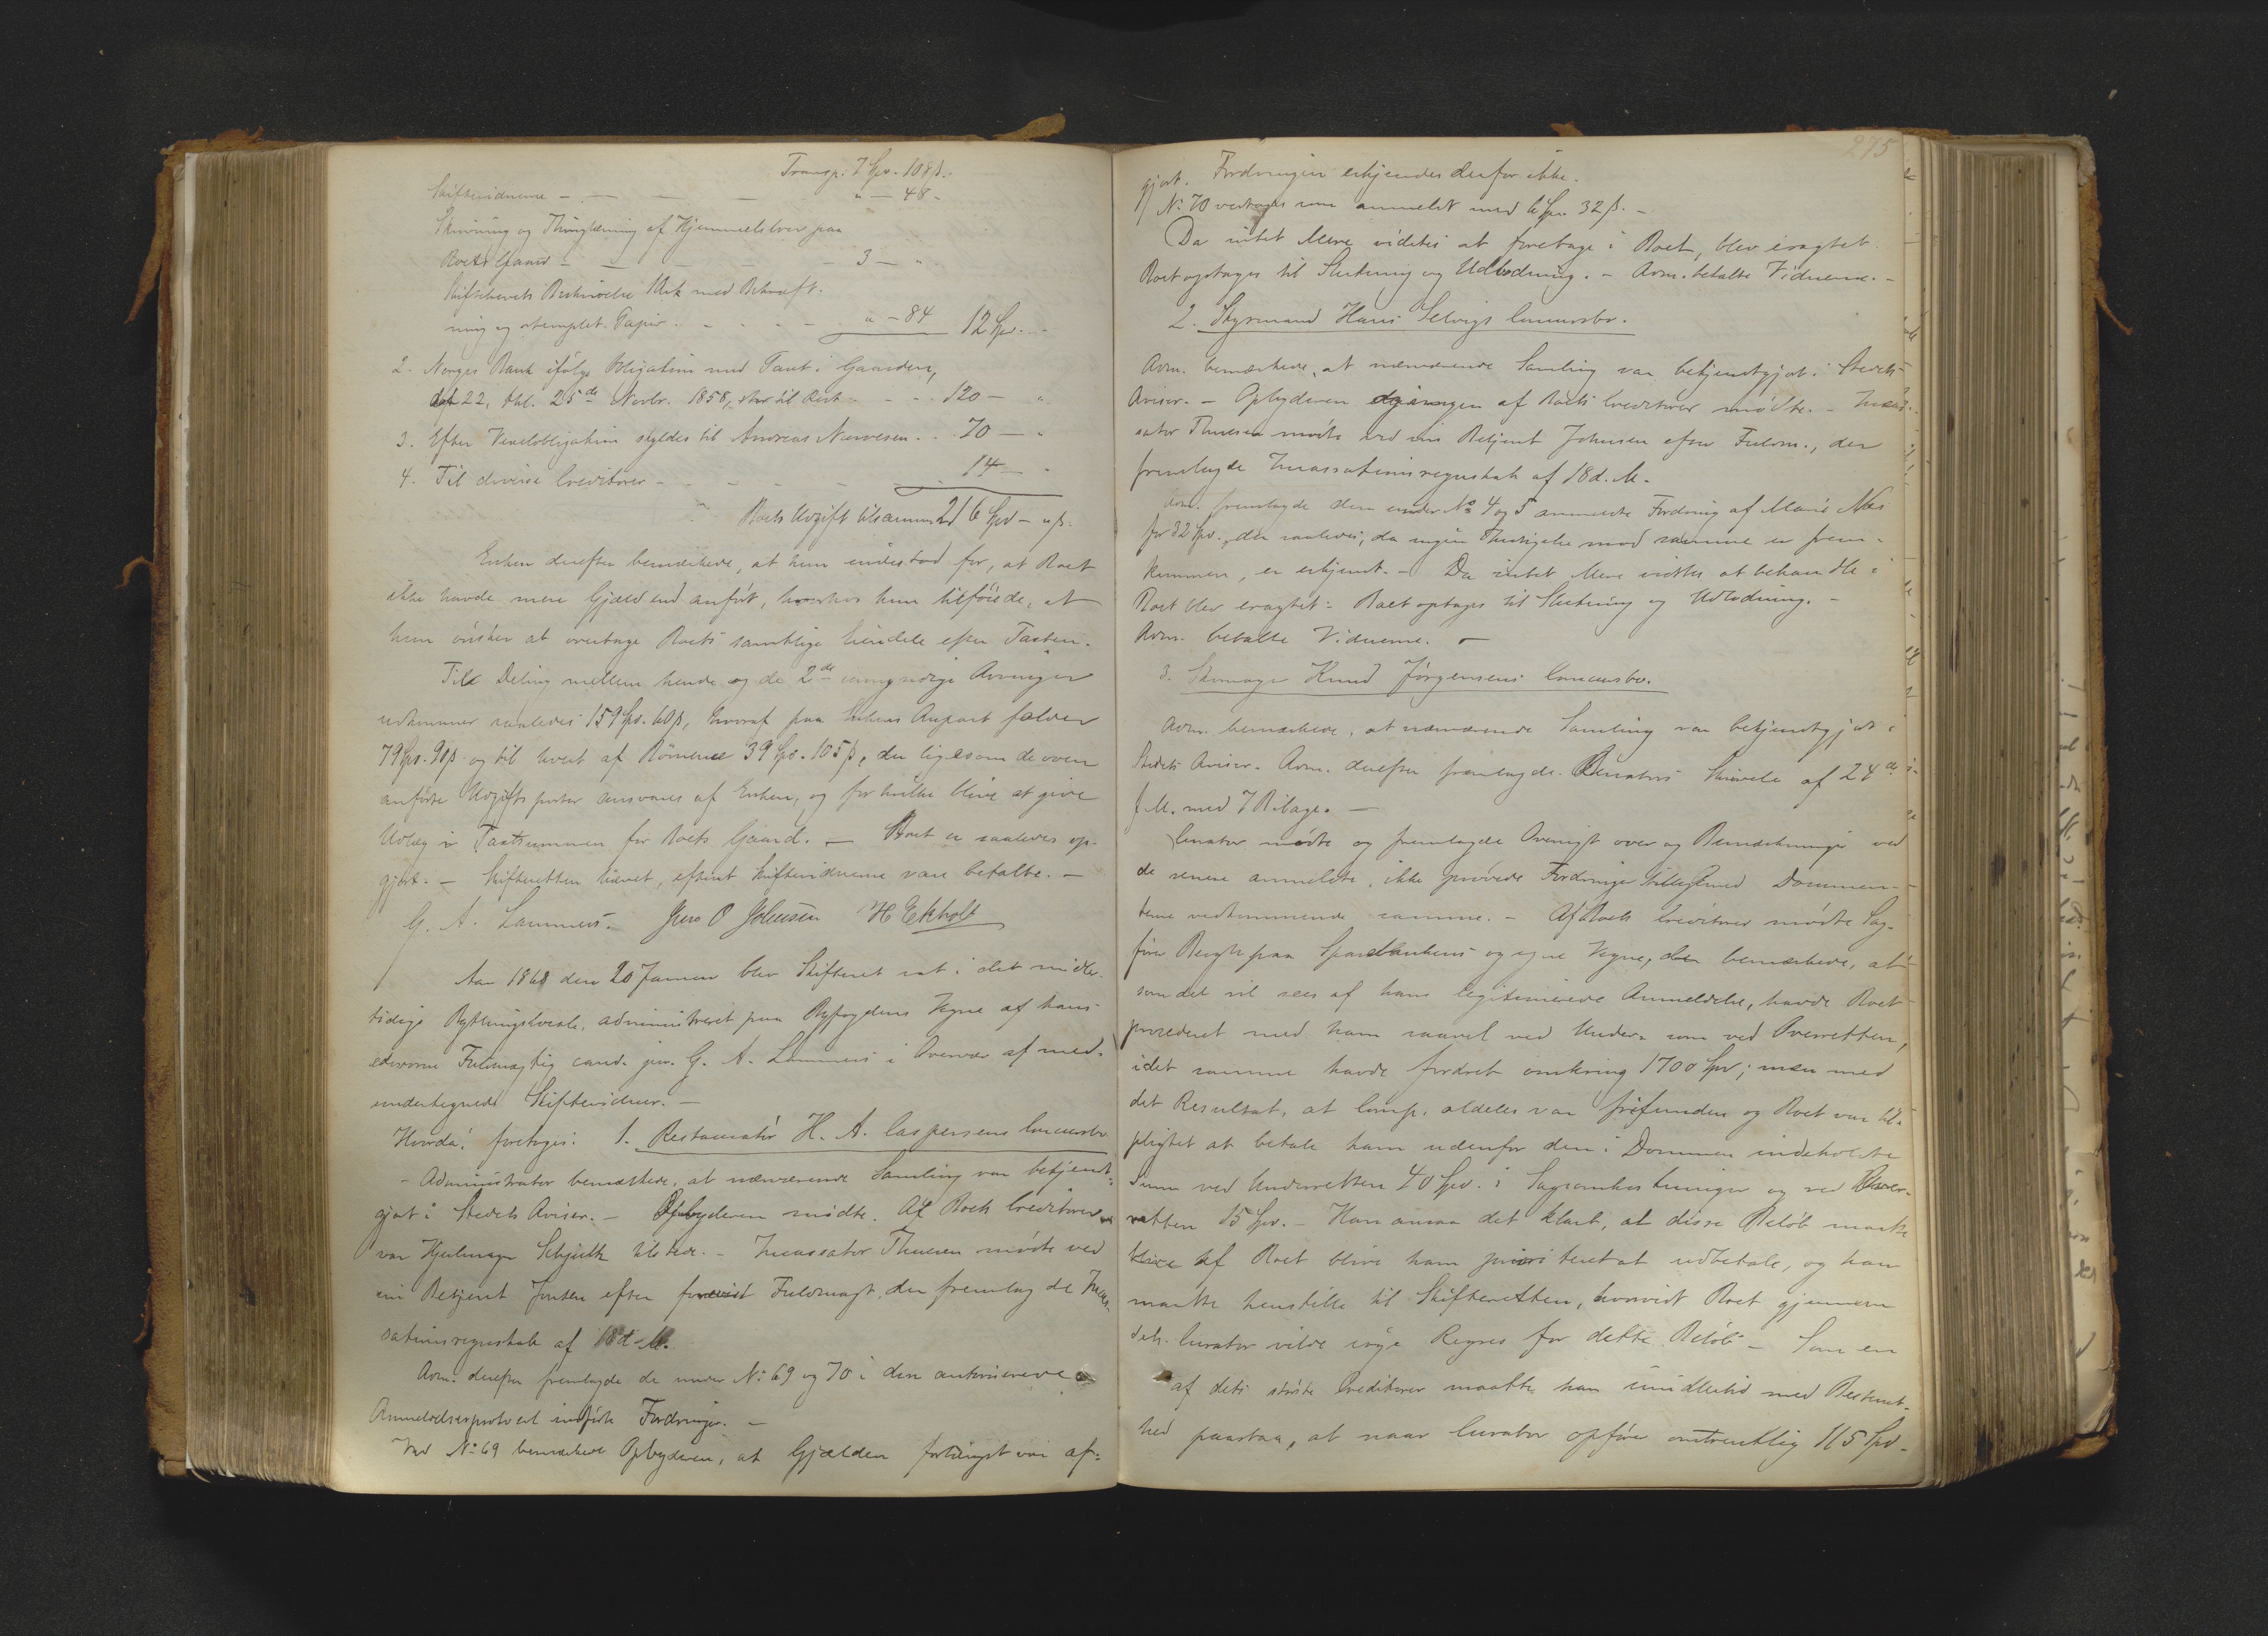 Transp. 7 Spd. 108 ß.
Skiftevidnerne - " - 48 -
Skrivning og Thinglæsning af Hjemmelsbrev paa
Boets Gaard - 3 - "
Skiftebrevets Beskrivelse 1 Ark med Bekræft-
ning og stemplet Papir. " - 84 12 Spd. -
2. Norges Bank ifølge Obligation med Pant i Gaarden,
dat 22, thl. 25de Novbr. 1858, stor til Rest 120 - "
3. Efter Vexelobligation skyldes til Andreas 70 - "
4. Til diverse Creditorer - 14 - "
Boets Udgift tilsammen 216 Spd - " ß.
Enken derefter bemærkede, at hun indestod for, at Boet
ikke havde mere Gjæld end anført, hvorhos hun tilføiede, at
hun ønsker at overtage Boets samtlige Eiendele efter Taxten.
Til Deling mellem hende og de 2de umyndige Arvinger
udkommer saaledes 159 Spd. 60 ß, hvoraf paa Enkens Anpart falder
79 Spd. 90 ß og til hvert af Børnene 39 Spd. 105 ß, der ligesom de oven
anførte Udgiftsposter ansvares af Enken, og for hvilke bliver at give
Udlæg i Taxtsummen for Boets Gaard. - Boet er saaledes op-
gjort. - Skifteretten hævet, efterat Skiftevidnerne vare betalte. -
G. A. Lammers. Jens O Johnsen H Ekholt
Aar 1868 den 20 Januar blev Skifteret sat i det midler-
tidige Bythingslocale, administreret paa Byfogdens Vegne af hans
edsvorne Fuldmægtig cand. jur. G. A. Lammers i Overvær af med-
undertegnede Skiftevidner. -
Hvorda: foretoges: 1. Restauratør H. A. Caspersens Concursbo
- Administrator bemærkede, at nærværende Samling var bekjendt-
gjort i Stedets Aviser. - Opbyderen mødte. Af Boets Creditorer
var Hjulmager tilstede. - Incassator Thuesen mødte ved
sin Betjent efter forevist Fuldmagt, der fremlagde Incas-
sationsregnskab af 18 d. M.
Adm. derefter fremlagde de under No 69 og 70 i den autoriserede
Anmeldelsesprotocol indførte Fordringer. -
Ved No 69 bemærkede Opbyderen, at Gjælden forlængst var af-
275
gjort. Fordringen erkjendes derfor ikke.
No 70 vedtoges som anmeldt med 6 Spd 32 ß. -
Da intet Mere vidstes at foretage i Boet, blev eragtet:
Boet optages til Slutning og Udlodning. - Adm. betalte Vidnerne. -
2. Styrmand Hans Selvigs Concursbo.
Adm. bemærkede, at nærværende Samling var bekjendtgjort i Stedets
Aviser. - Opbyderen af Boets Creditorer mødte. - Incas-
sator Thuesen mødte ved sin Betjent Johnsen efter Fuldm., der
fremlagde Incassationsregnskab af 18 d. M.
Adm. fremlagde den under No 4 og 5 anmeldte Fordring af Marie Næs
for 32 Spd., der saaledes, da ingen Indsigelse mod samme er frem-
kommen, er erkjendt. - Da intet Mere vidstes at behandle i
Boet blev eragtet: Boet optages til Slutning og Udlodning. -
Adm. betalte Vidnerne. -
3. Skomager Knud Jørgensens Concursbo.
Adm. bemærkede, at nærværende Samling var bekjendtgjort i
Stedets Aviser. Adm. derefter fremlagde Curators Skrivelse af 24de
f. M. med 7 Bilage. -
Curator mødte og fremlagde Oversigt over og Bemærkninger ved
de senere anmeldte, ikke prøvede Fordringer tilligemed Documen-
terne vedkommende samme. - Af Boets Creditorer mødte Sag-
fører Bergh paa Sparebankens og egne Vegne, der bemærkede, at
som det vil sees af hans legitimerede Anmeldelse, havde Boet
procederet med ham saavel ved Under- som ved Overretten,
idet samme havde fordret omkring 1700 Spd; men med
det Resultat, at Comp. aldeles var frifunden og Boet var til-
pligtet at betale ham udenfor den i Dommen indeholdte
Sum ved Underretten 40 Spd. i Sagsomkostninger og ved Over-
retten 15 Spd. - Han ansaa det klart, at disse Beløb maatte
blive af Boet blive ham prioriteret at udbetale, og han
maatte henstille til Skifteretten, hvorvidt Boet gjennem
dets Curator vilde søge Regres for dette Beløb - Som en
af dets største Creditorer maatte han imidlertid med Bestemt-
hed paastaa, at naar Curator opfører omtrentlig 115 Spd.